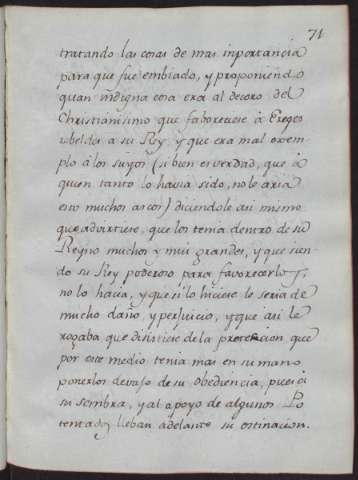 71
tratando las cosas de mas inportancia
para que fue embiado, y proponiendo
quan indigna cosa era al decoro del
Christianisimo que faboreciese à Ereges
rebeldes a su Rey, y que era mal exem-
plo â los suyos (si bien es verdad, que à
quien tanto lo havia sido, no le aria
esto muchos ascos) diciendole asi mismo
que advirtiese, que los tenia dentro de su
Reyno muchos y mui grandes, y que sien-
do su Rey poderoso para favorecerlos,
no lo hacia, y que si lo hiciese le seria de
mucho daño, y perjuicio, y que asi le
rogaba que desistiese de la proteccion, que
por este medio tenia mas en su mano
ponerlos devajo de su obediencia, pues a
su sombra, y al apoyo de algunos Po
tentados lleban adelante su ostinacion.